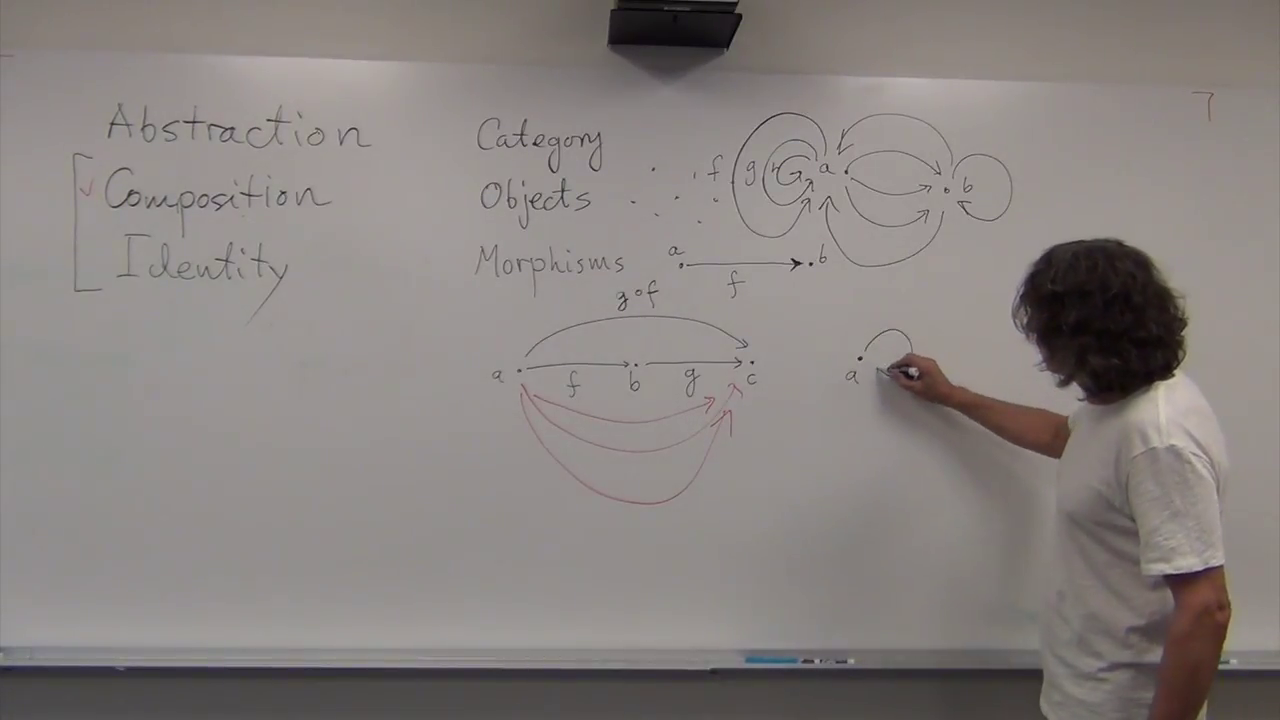 Abstraction
Composition
Identity
Category
Objects
Morphisms
f g h a b
a f b
g∘f
a f b g c
a
7